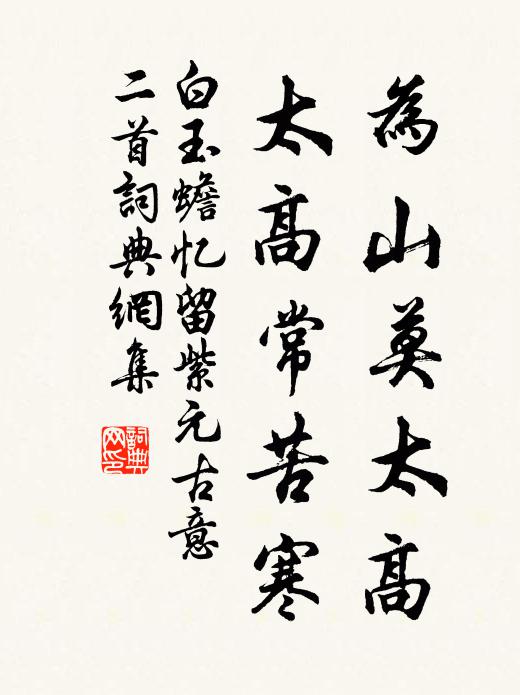 為山莫太高
太高常苦寒
白玉蟾忆留紫元古意
二首詞典網集
詞典
网印